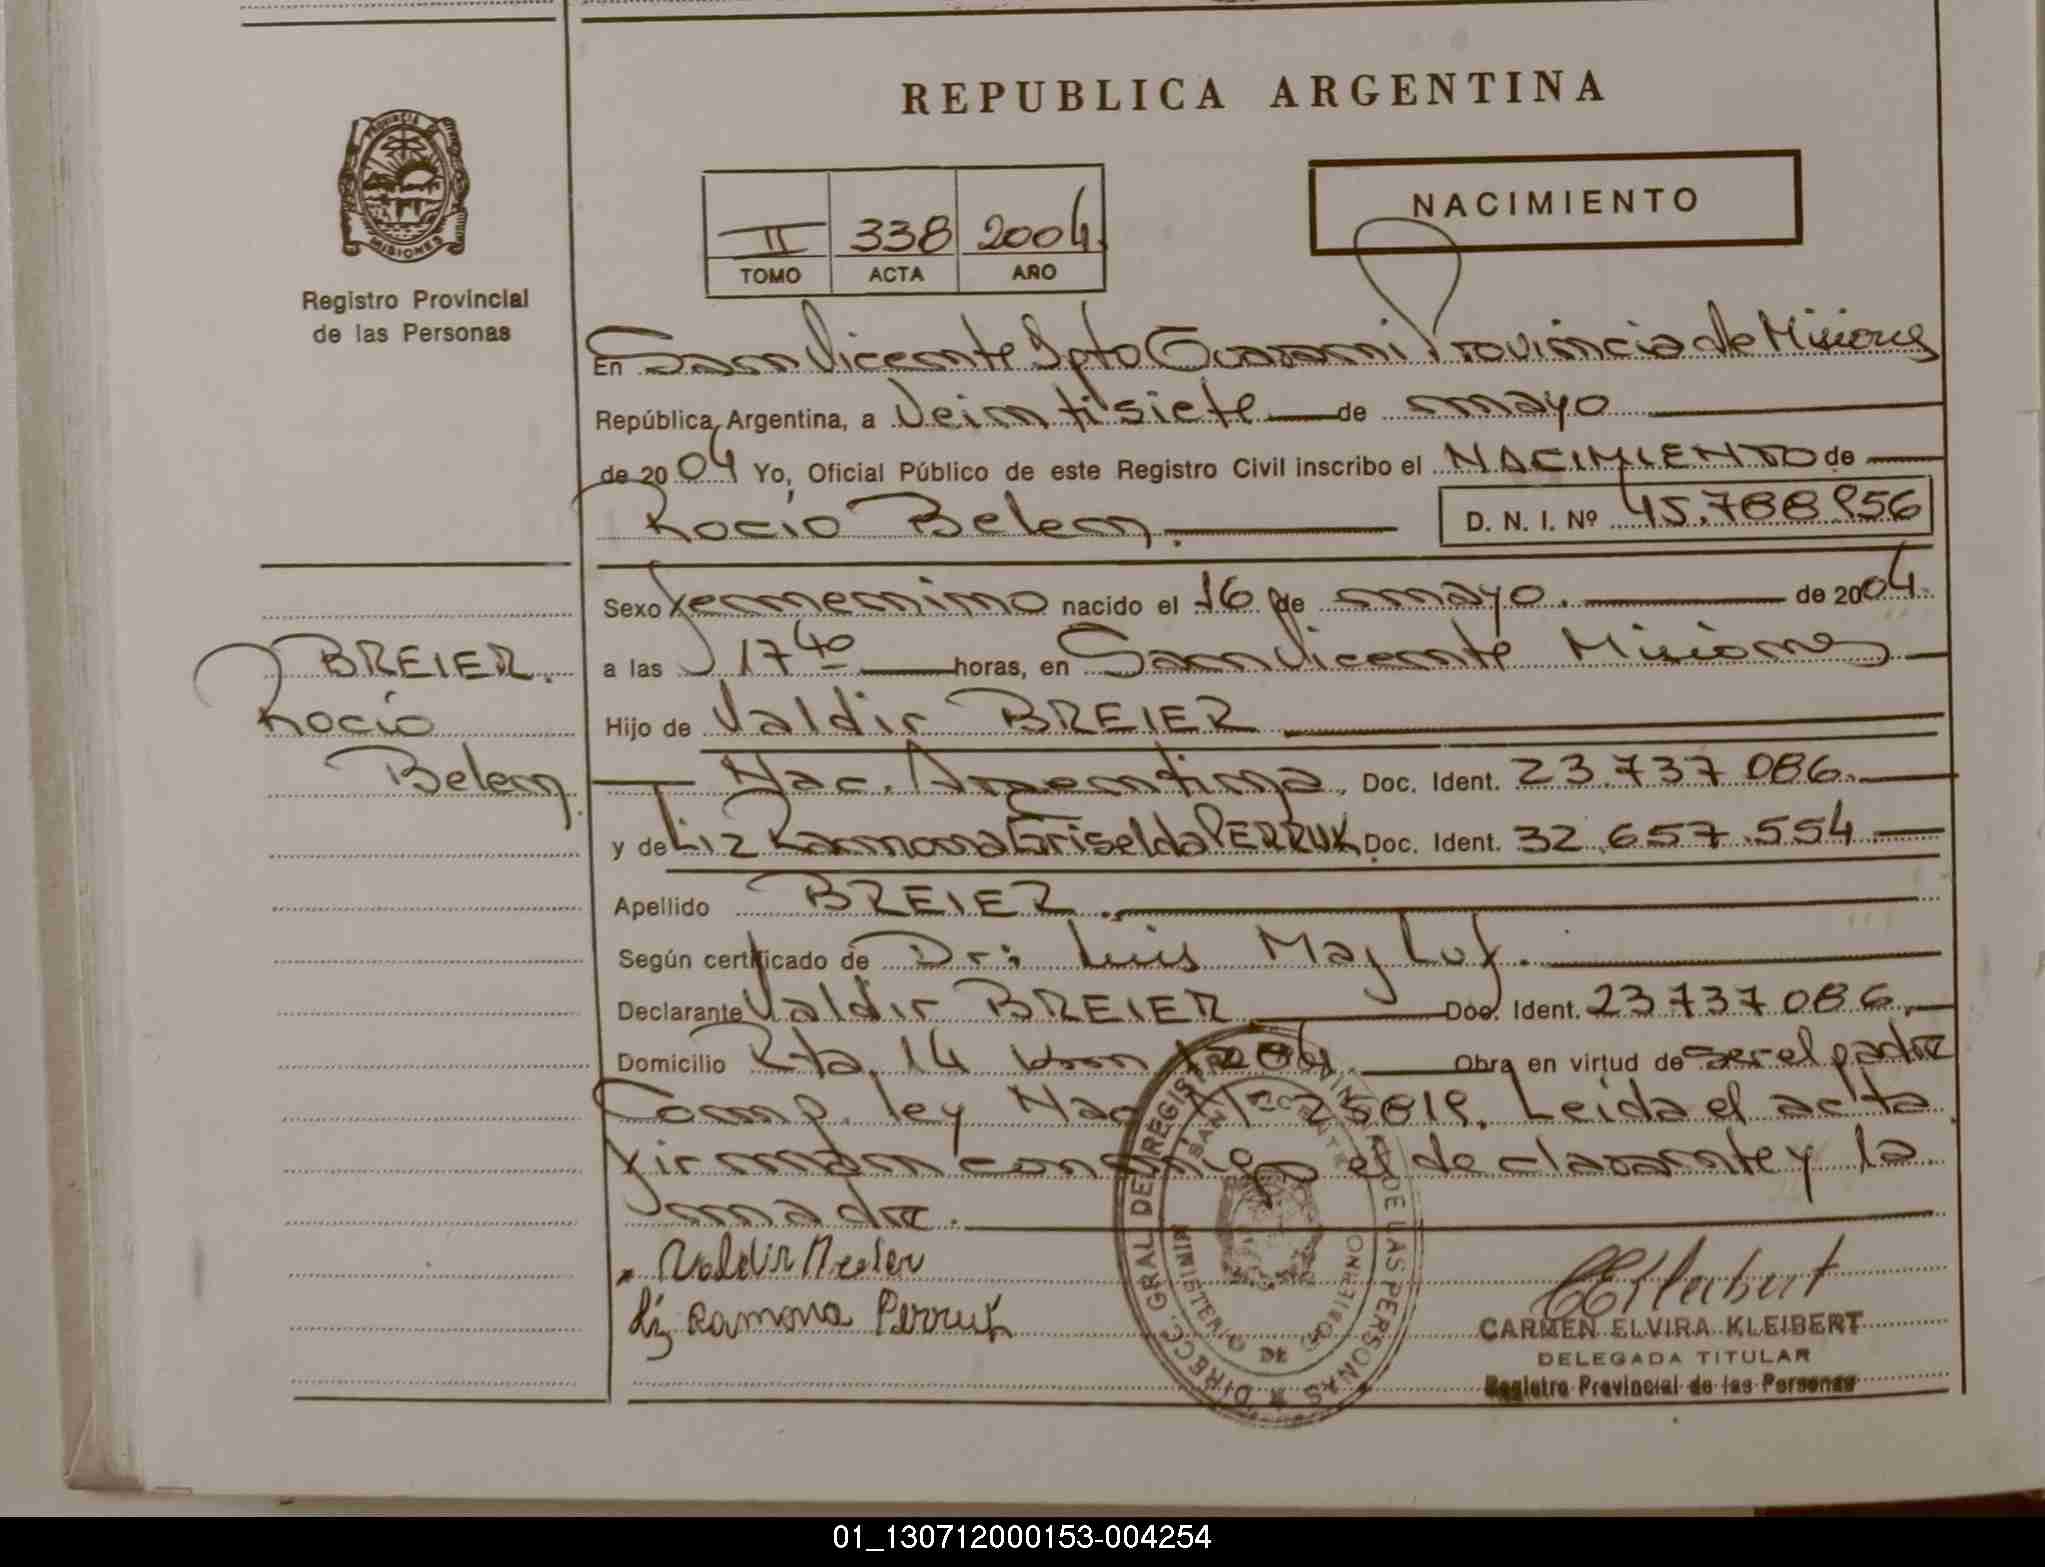 REPUBLICA ARGENTINA
PROVINCIA DE MISIONES
Registro Provincial
de las Personas
II 338 2004
TOMO ACTA AÑO
NACIMIENTO
En San Vicente Dpto Guarani Provincia de Misiones
República Argentina, a Veintisiete de mayo
de 2004 Yo, Oficial Público de este Registro Civil inscribo el NACIMIENTO de
Rocio Belen. D. N. I. Nº 45.788.956
Sexo femenino nacido el 16 de mayo. de 2004.
BREIER. a las 17 40 horas, en San Vicente Misiones
Rocio Hijo de Valdir BREIER
Belen. Nac. Argentina, Doc. Ident. 23.737.086.
y de Liz Ramona Griselda PERRUK. Doc. Ident. 32.657.554
Apellido BREIER.
Según certificado de Dr: Luis Majluf.
Declarante Valdir BREIER Doc. Ident. 23737086.
Domicilio Rta. 14 km 1204. Obra en virtud de ser el padre
Comp. ley Nac Nº 25819. Leida el acta
firman conmigo el declarante y la
madre.
Valdir Breier
Liz Ramona Perruk
DIRECC. GRAL DEL REGISTRO PROVINCIAL DE LAS PERSONAS
SAN VICENTE
MINISTERIO DE GOBIERNO
CARMEN ELVIRA KLEIBERT
DELEGADA TITULAR
Registro Provincial de las Personas
01_130712000153-004254